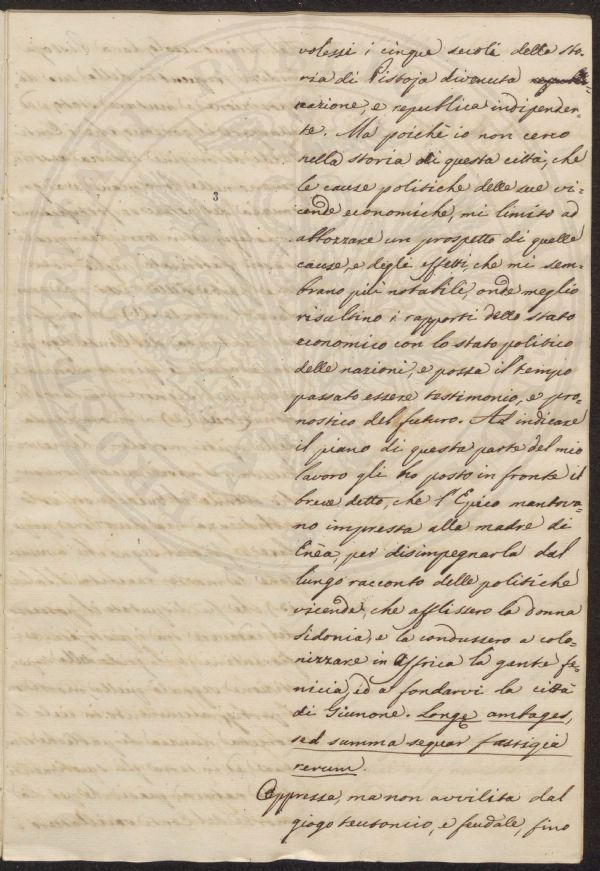 volessi i cinque secoli della sto-
ria di Pistoja divenuta
nazione, e republica indipenden-
te. Ma poiché io non cerco
nella storia di questa città, che
le cause politiche delle sue vi-
cende economiche, mi limito ad
abbozzare un prospetto di quelle
cause, e degli effetti, che mi sem-
brano più notabili, onde meglio
risultino i rapporti dello stato
economico con lo stato politico
delle nazioni, e possa il tempo
passato essere testimonio, e pro-
nostico del futuro. Ad indicare
il piano di questa parte del mio
lavoro gli ho posto in fronte il
breve detto, che l'Epico mantova-
no impresta alla madre di
Enèa, per disimpegnarla dal
lungo racconto delle politiche
vicende, che afflissero la donna
sidonia, e la condussero a colo-
nizzare in Affrica la gente fe-
nicia, ed a fondarvi la città
di Giunone. Longe ambages,
sed summa sequar fastigia
rerum.
Oppressa, ma non avvilita dal
giogo teutonico, e feudale, fino
3